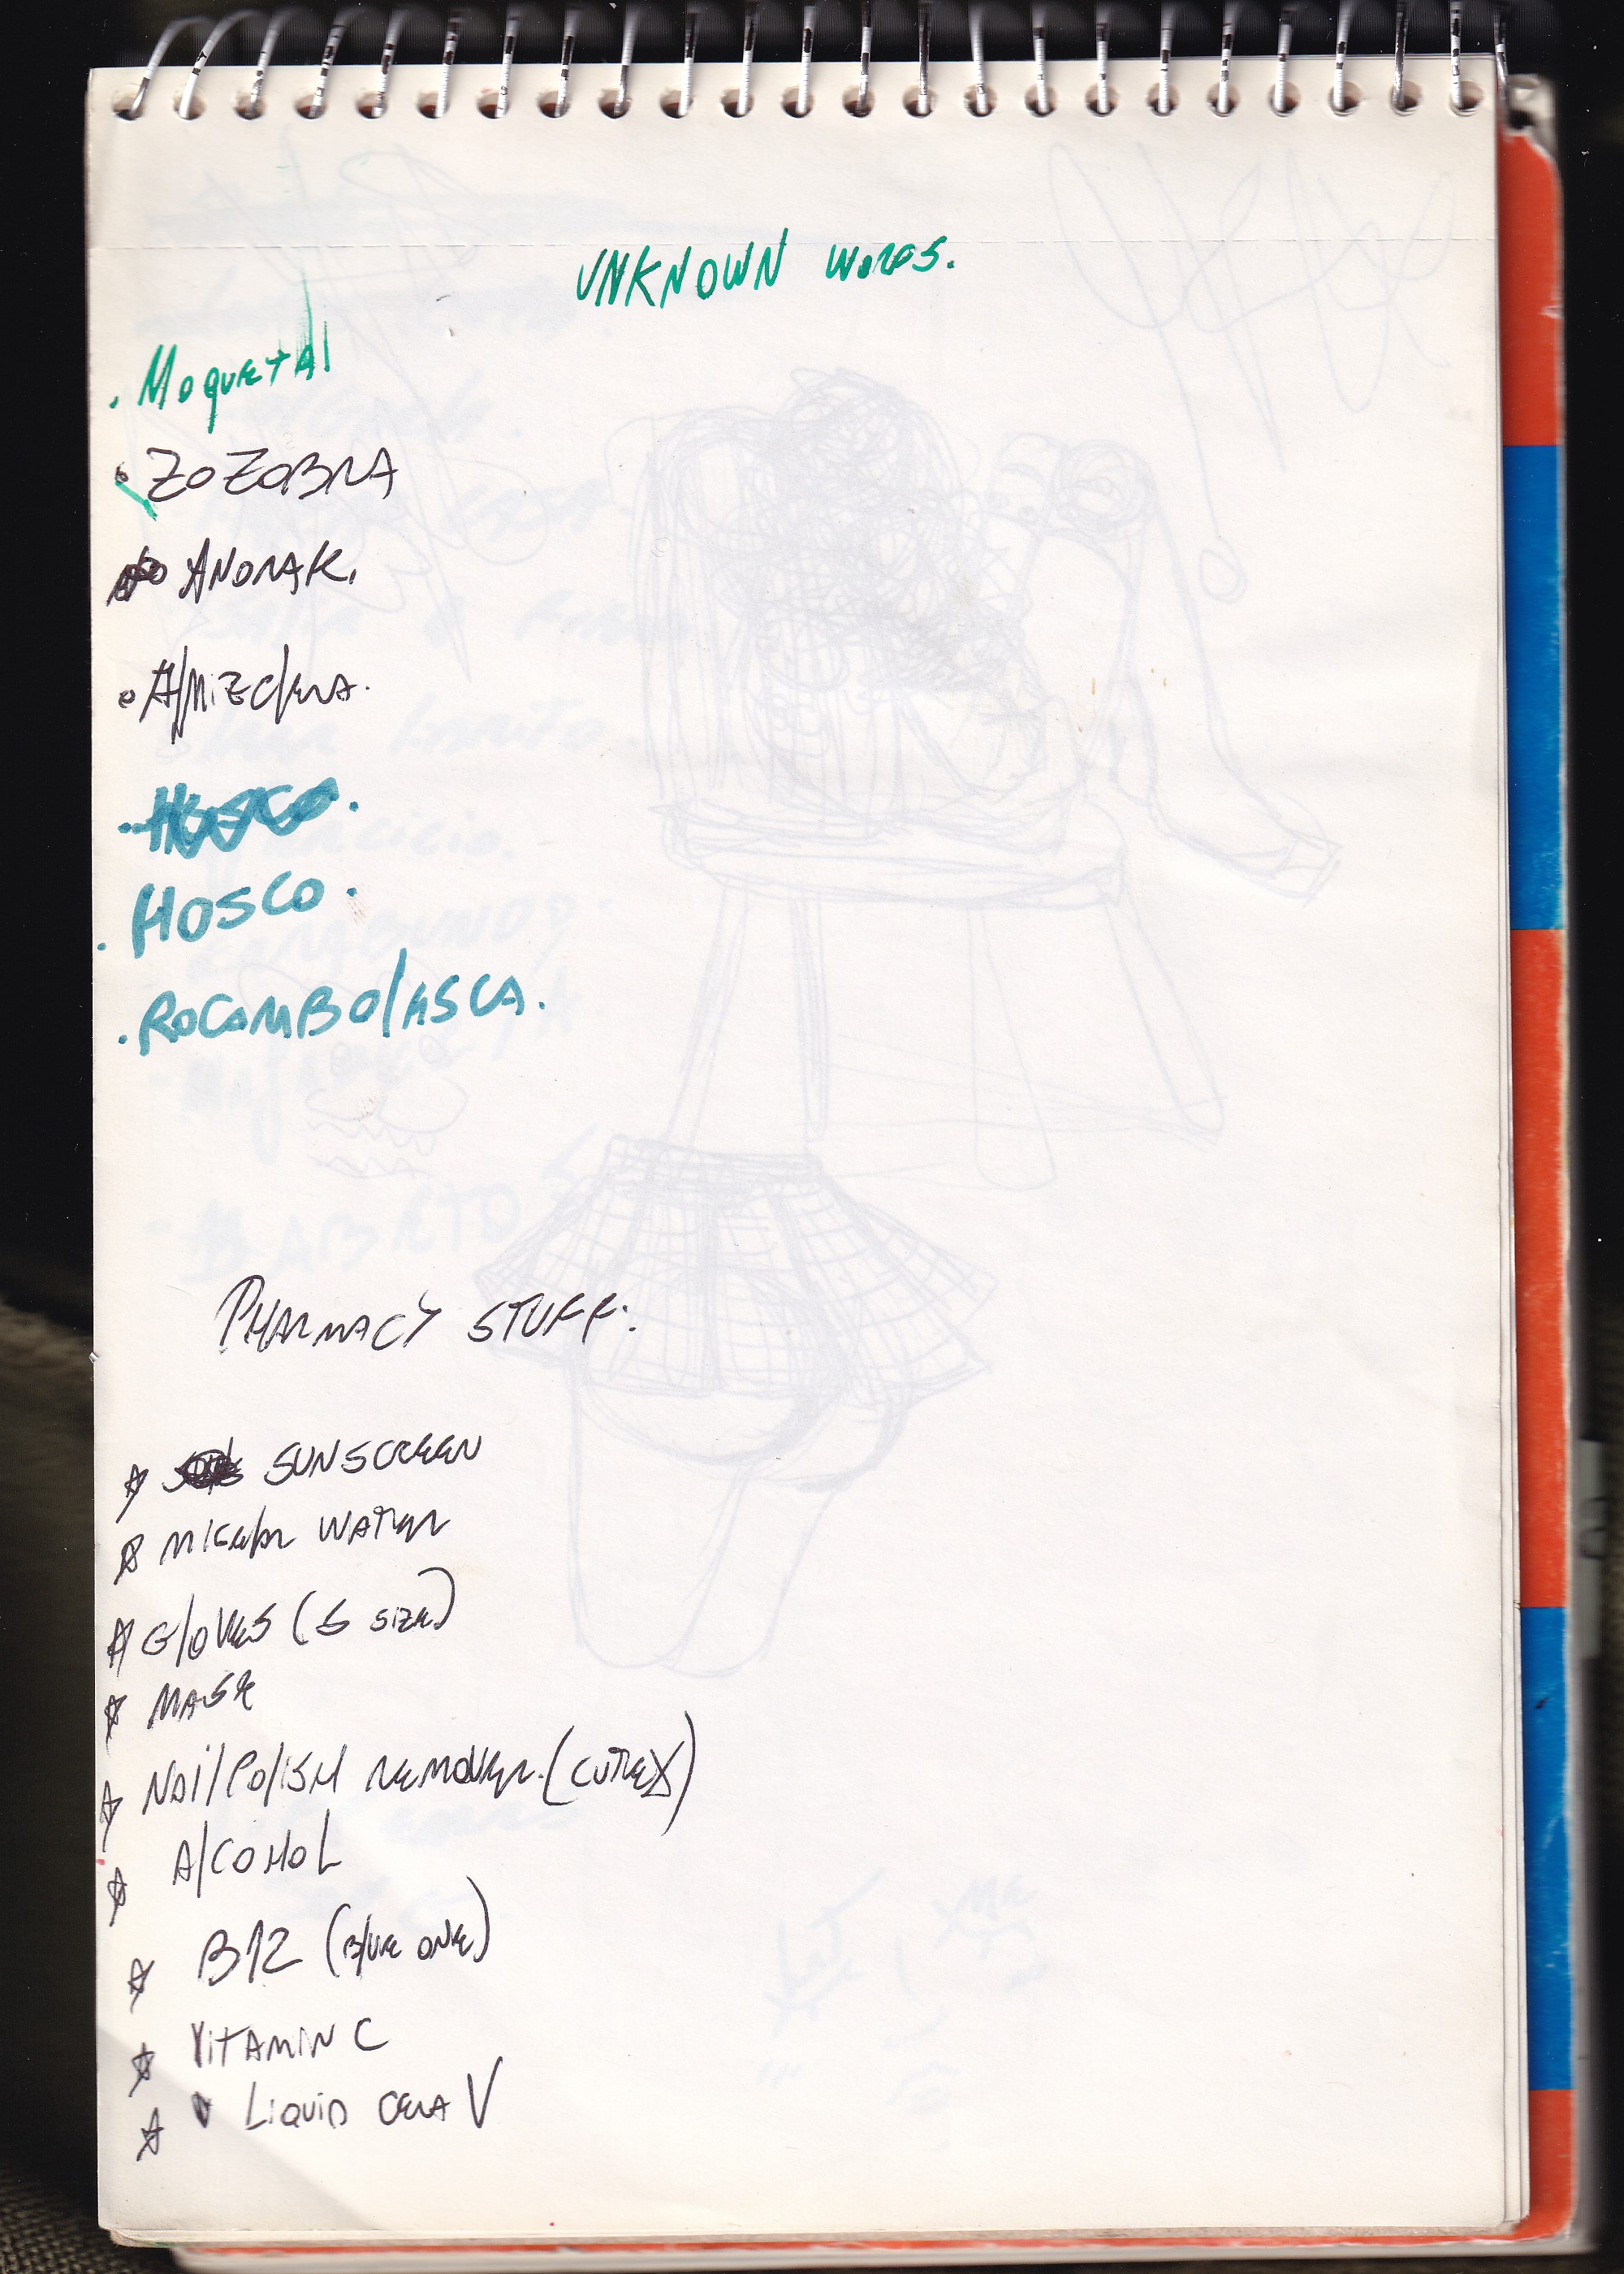 UNKNOWN WORDS.
. MoquetAl
• ZOZOBRA
ANORAK.
• AlMizclera.
. HOSCO.
. HOSCO.
. ROCAMBOlESCA.
PHARMACY STUFF.
☆ SUNSCREEN
☆ Micelar WATER
☆ GlOVES (S SIZE)
☆ MASK
☆ NAil POlISH REMOVER. (CUTEX)
☆ AlCOHOL
☆ B12 (BlUE ONE)
☆ VITAMIN C
☆ LIQUID CERA V